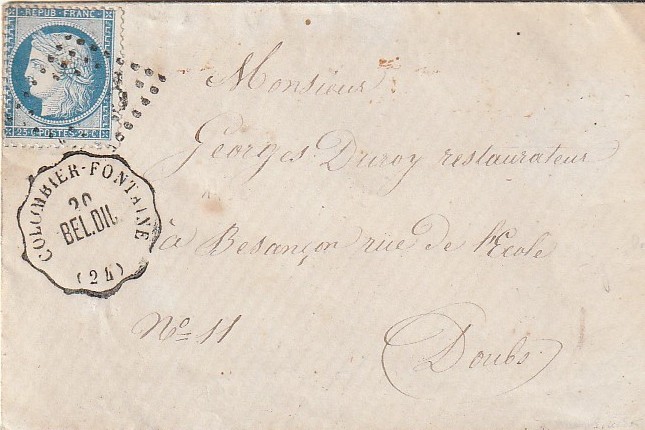 REPUB·FRANC·
25 C POSTES 25 C
COLOMBIER-FONTAINE
20
BEL.DIJ.
(24)
Monsieur
Georges Duroy restaurateur
à Besançon rue de l'Ecole
No 11
Doubs